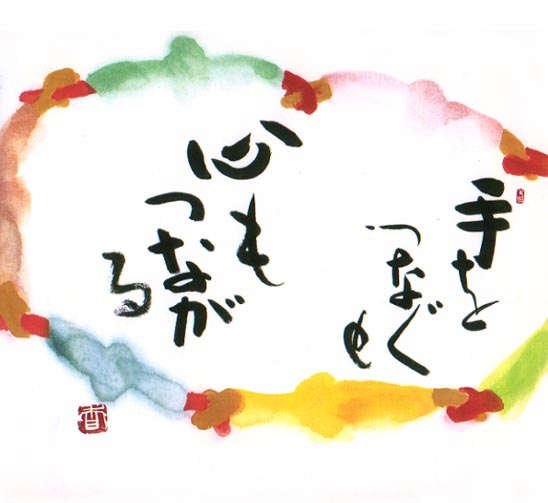 手を
つなぐ
心も
つなが
る
香